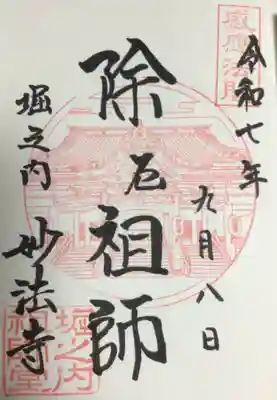 令和七年
九月八日
除厄祖師
堀之内
妙法寺
堀之内
祖師堂